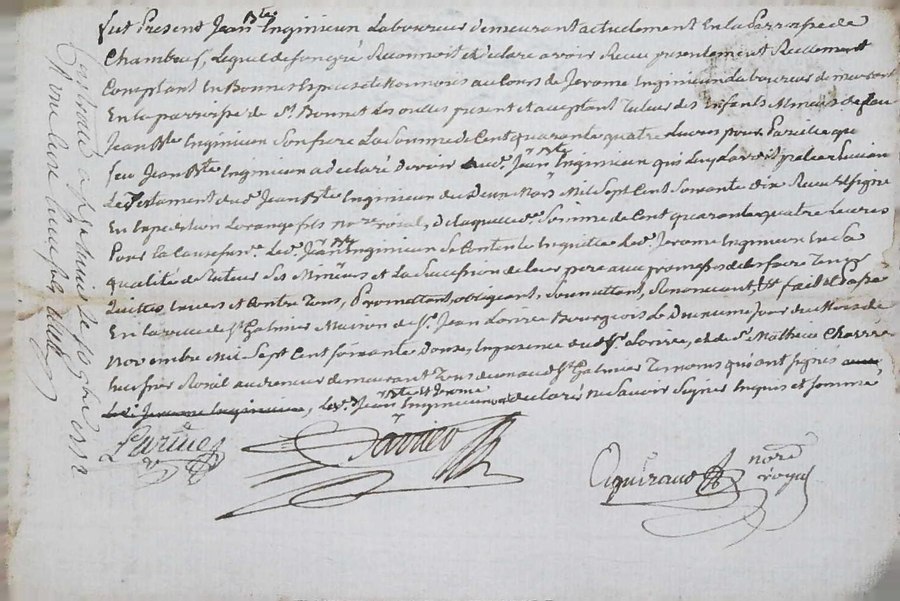 fut Present Jean Bte Inginieur Laboureur demeurant actuelement En la Parroisse de
Chambeuf, Lequel de son gré Reconnoit et declare avoir Receu presentement Reellement
Comptant En Bonnes Especes de Monnoies au Cours de Jerome Inginieur laboureur demeurant
En la parroisse de St. Bonnet Les oulles present et acceptant Tuteur des Enfants Mineurs de feu
Jean Bte Inginieur Son frere La Somme de Cent quarante quatre Livres pour Pareille que
feu Jean Bte Inginieur a declaré devoir audt. Jean Bte Inginieur qui
Le Testament dud. Jean Bte Inginieur du Deux Mars Mil Sept Cent Soixante dix Receu Et Signé
En Expedition Lorange fils nore roial, De laquelle de. Somme de Cent quarante quatre Livres
Pour la Cause susd. Led. Jean Bte Inginieur Se Contente Enquitte Led. Jerome Inginieur En Sa
qualité de tuteur Ses Mineurs et La Succession de Leur pere avec promesse de les faire Tenir
Quittes Envers et Contre Tous, Promettant, obligeant, Soumettant, Renonceant, fait et Passé
En la ville de St Galmier Maison de Sr. Jean Bourgeois Le Deuxieme jour du Mois de
Novembre Mil Sept Cent soixante Douze, En presence dud Sr. et de Sr. Mathieu Charrà
huissier Roial audiencier demeurant Tous deux aud St Galmier Temoins qui ont signés avec
led. Jerome Inginieur, Led. Jean Bte et Jerome Inginieur ont declaré ne Savoir Signer Enquis et Sommé
nore
royal